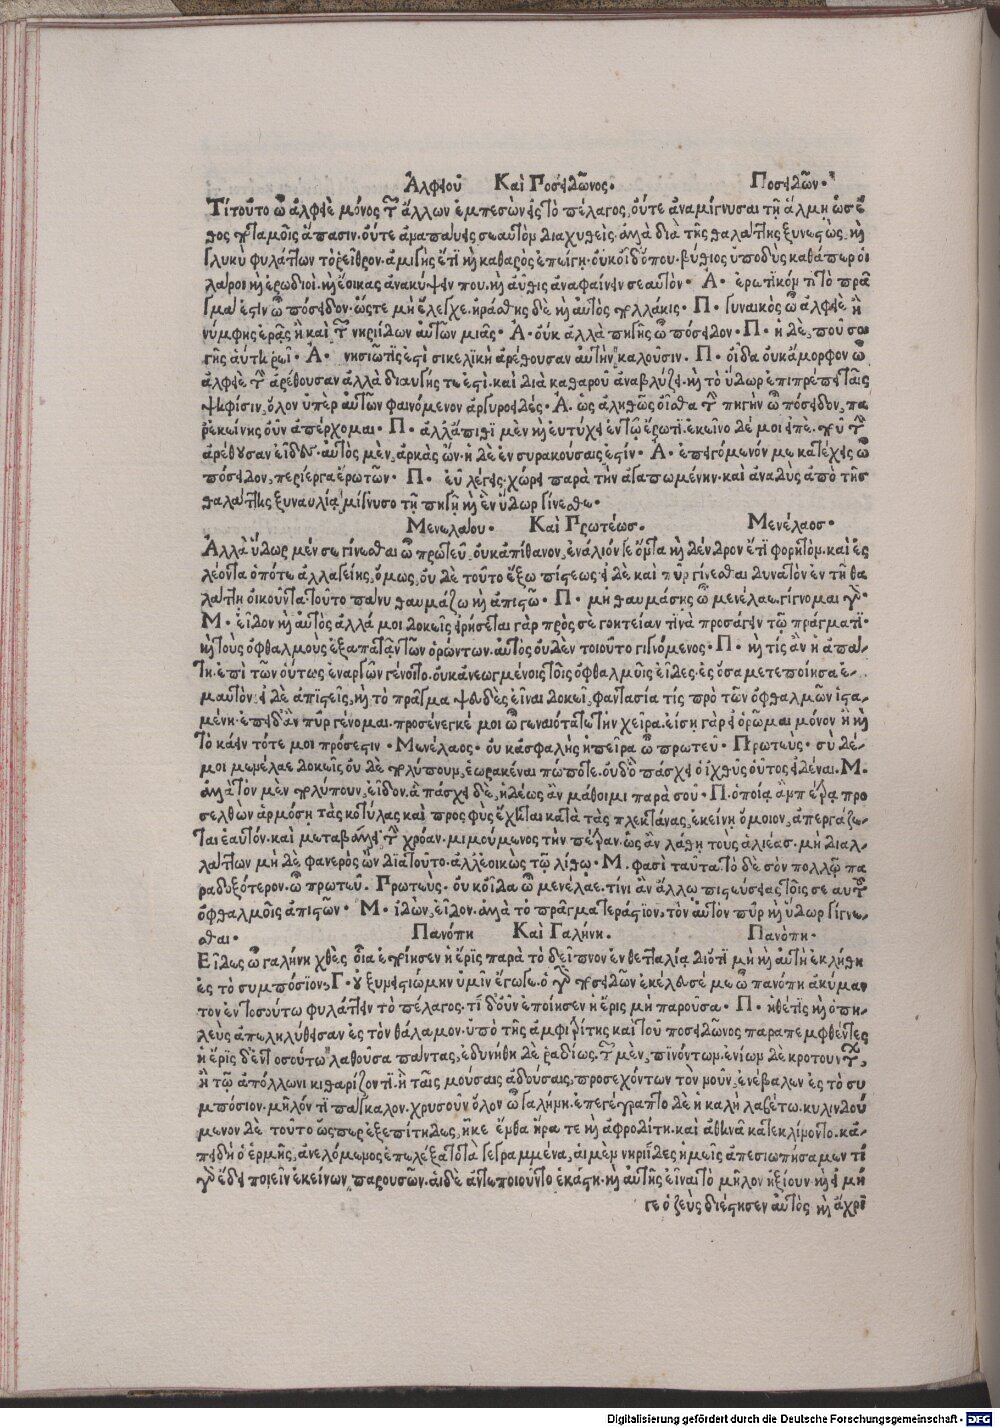 Ἀλφειοῦ Καὶ Ποσειδῶνος. Ποσειδῶν.
Τί τοῦτο ὦ ἀλφειὲ μόνος τῶν ἄλλων ἐμπεσὼν ἐς τὸ πέλαγος, οὔτε ἀναμίγνυσαι τῇ ἅλμῃ ὡς ἔ
θος ποταμοῖς ἅπασιν. οὔτε ἀναπαύεις σεαυτὸν διαχυθεὶς. ἀλλὰ διὰ τῆς θαλάττης ξυνεστὼς. καὶ
γλυκὺ φυλάττων τὸ ῥεῖθρον. ἀμιγὴς ἔτι καὶ καθαρὸς ἐπείγῃ. οὐκ οἶδ' ὅπου. βύθιος ὑποδὺς καθάπερ οἱ
λάροι καὶ ἐρωδιοὶ. καὶ ἔοικας ἀνακύψειν που. καὶ αὖθις ἀναφαίνειν σεαυτόν. Α. ἐρωτικόν τι τὸ πρᾶ
γμά ἐστιν ὦ πόσειδον. ὥστε μὴ ἔλεγχε. ἠράσθης δὲ καὶ αὐτὸς πολλάκις. Π. γυναικὸς ὦ ἀλφειὲ ἢ
νύμφης ἐρᾷς ἢ καὶ τῶν νηρηίδων αὐτῶν μιᾶς. Α. οὐκ ἀλλὰ πηγῆς ὦ πόσειδον. Π. ἡ δὲ, ποῦ σοι
γῆς αὕτη ῥεῖ. Α. νησιῶτίς ἐστι σικελικὴ ἀρέθουσαν αὐτὴν καλοῦσιν. Π. οἶδα οὐκ ἄμορφον ὦ
ἀλφειὲ τὴν ἀρέθουσαν ἀλλὰ διαυγής τε ἐστὶ. καὶ διὰ καθαροῦ ἀναβλύζει. καὶ τὸ ὕδωρ ἐπιπρέπει ταῖς
ψηφῖσιν, ὅλον ὑπὲρ αὐτῶν φαινόμενον ἀργυροειδές. Α. ὡς ἀληθῶς οἶσθα τὴν πηγὴν ὦ πόσειδον, πα
ρ' ἐκείνης οὖν ἀπέρχομαι. Π. ἀλλ' ἄπιθι μὲν καὶ εὐτύχει ἐν τῷ ἔρωτι. ἐκεῖνο δέ μοι εἰπὲ. ποῦ τὴν
ἀρέθουσαν εἶδες. αὐτὸς μὲν, ἀρκὰς ὤν. ἡ δὲ ἐν συρακούσαις ἐστίν. Α. ἐπειγόμενόν με κατέχεις ὦ
πόσειδον, περίεργα ἐρωτῶν. Π. εὖ λέγεις. χώρει παρὰ τὴν ἀγαπωμένην. καὶ ἀναδὺς ἀπὸ τῆς
θαλάττης ξυναυλίᾳ μίγνυσο τῇ πηγῇ καὶ ἓν ὕδωρ γίνεσθε.
Μενελάου. Καὶ Πρωτέως. Μενέλαος.
Ἀλλὰ ὕδωρ μέν σε γίνεσθαι ὦ πρωτεῦ, οὐκ ἀπίθανον, ἐνάλιόν γε ὄντα καὶ δένδρον ἔτι φορητόν. καὶ ἐς
λέοντα ὁπότε ἀλλαγείης, ὅμως, οὐδὲ τοῦτο ἔξω πίστεως. εἰ δὲ καὶ πῦρ γίνεσθαι δυνατὸν ἐν τῇ θα
λάττῃ οἰκοῦντα τοῦτο πάνυ θαυμάζω καὶ ἀπιστῶ. Π. μὴ θαυμάσῃς ὦ μενέλαε. γίγνομαι γὰρ.
Μ. εἶδον καὶ αὐτός ἀλλά μοι δοκεῖς εἰρήσεται γὰρ πρὸς σὲ γοητείαν τινὰ προσάγειν τῷ πράγματι.
καὶ τοὺς ὀφθαλμοὺς ἐξαπατᾶν τῶν ὁρώντων. αὐτὸς οὐδὲν τοιοῦτο γιγνόμενος. Π. καὶ τίς ἂν ἡ ἀπά
τη. ἐπὶ τῶν οὕτως ἐναργῶν γένοιτο. οὐκ ἀνεῳγμένοις τοῖς ὀφθαλμοῖς εἶδες. ἐς ὅσα μετεποίησα ἐ-
μαυτόν. εἰ δὲ ἀπιστεῖς, καὶ τὸ πρᾶγμα ψευδὲς εἶναι δοκεῖ, φαντασία τίς πρὸ τῶν ὀφθαλμῶν ἱστα-
μένη. ἐπειδὰν πῦρ γένομαι. προσένεγκέ μοι ὦ γενναιότατε τὴν χεῖρα. εἴσῃ γὰρ εἰ ὁρῶμαι μόνον ἢ καὶ
τὸ κάειν τότε μοι πρόσεστιν. Μενέλαος. οὐκ ἀσφαλὴς ἡ πεῖρα ὦ πρωτεῦ. Πρωτεὺς. σὺ δέ-
μοι μενέλαε δοκεῖς οὐδὲ πολύπουν, ἑωρακέναι πώποτε. οὐδ' ὃ πάσχει ὁ ἰχθῦς οὗτος εἰδέναι. Μ.
ἀλλὰ τὸν μὲν πολύπουν, εἶδον. ἃ πάσχει δὲ, ἡδέως ἂν μάθοιμι παρὰ σοῦ. Π. ὁποίᾳ ἂν πέτρᾳ προ
σελθὼν ἁρμόσῃ τὰς κοτύλας καὶ προσφὺς ἔχηται κατὰ τὰς πλεκτάνας, ἐκείνῃ ὅμοιον, ἀπεργάζε-
ται ἑαυτόν. καὶ μεταβάλλει τὴν χρόαν. μιμούμενος τὴν πέτραν. ὡς ἂν λάθῃ τοὺς ἁλιέασ. μὴ διαλ-
λάττων μὴ δὲ φανερὸς ὢν διὰ τοῦτο. ἀλλ' ἐοικὼς τῷ λίθῳ. Μ. φασὶ ταῦτα. τὸ δὲ σὸν πολλῷ πα
ραδοξότερον. ὦ πρωτεῦ. Πρωτεὺς. οὐκ οἶδα ὦ μενέλαε. τίνι ἂν ἄλλῳ πιστεύσειας τοῖς σεαυτοῦ
ὀφθαλμοῖς ἀπιστῶν. Μ. ἰδὼν, εἶδον. ἀλλὰ τὸ πρᾶγμα τεράστιον. τὸν αὐτὸν πῦρ καὶ ὕδωρ γίγνε-
σθαι. Πανόπη Καὶ Γαλήνη. Πανόπη.
Εἶδες ὦ γαλήνη χθὲς οἷα ἐποίησεν ἡ ἔρις παρὰ τὸ δεῖπνον ἐν θετταλίᾳ διότι μὴ καὶ αὐτὴ ἐκλήθη
ἐς τὸ συμπόσιον; Γ. οὐ ξυνειστιώμην ὑμῖν ἔγωγε. ὁ γὰρ ποσειδῶν ἐκέλευσέ με ὦ πανόπη ἀκύμαν
τον ἐν τοσούτῳ φυλάττειν τὸ πέλαγος. τί δ' οὖν ἐποίησεν ἡ ἔρις μὴ παροῦσα. Π. ἡ θέτις καὶ ὁ πη-
λεὺς ἀπεληλύθησαν ἐς τὸν θάλαμον. ὑπὸ τῆς ἀμφιτρίτης καὶ τοῦ ποσειδῶνος παραπεμφθέντες
ἡ ἔρις δ' ἐν τοσούτῳ λαθοῦσα πάντας, ἐδυνήθη δὲ ῥᾳδίως. τῶν μὲν, πινόντων. ἐνίων δὲ κροτούντων,
ἢ τῷ ἀπόλλωνι κιθαρίζοντι. ἢ ταῖς μούσαις ἀδούσαις, προσεχόντων τὸν νοῦν, ἐνέβαλεν ἐς τὸ συ
μπόσιον. μῆλόν τι πάγκαλον. χρυσοῦν ὅλον ὦ γαλήνη. ἐπεγέγραπτο δὲ ἡ καλὴ λαβέτω. κυλινδού
μενον δὲ τοῦτο ὥσπερ ἐξεπίτηδες, ἧκε ἔνθα ἥρα τε καὶ ἀφροδίτη. καὶ ἀθηνᾶ κατεκλίνοντο. κἀ-
πειδὴ ὁ ἑρμῆς, ἀνελόμενος ἐπελέξατο τὰ γεγραμμένα, αἱ μὲν νηρηίδες ἡμεῖς ἀπεσιωπήσαμεν τί
γὰρ ἔδει ποιεῖν ἐκείνων παρουσῶν. αἱ δὲ ἀντεποιοῦντο ἑκάστη. καὶ αὑτῆς εἶναι τὸ μῆλον ἠξίουν. καὶ εἰ μή
γε ὁ ζεὺς διέστησεν αὐτὰς καὶ ἄχρι
Digitalisierung gefördert durch die Deutsche Forschungsgemeinschaft - DFG